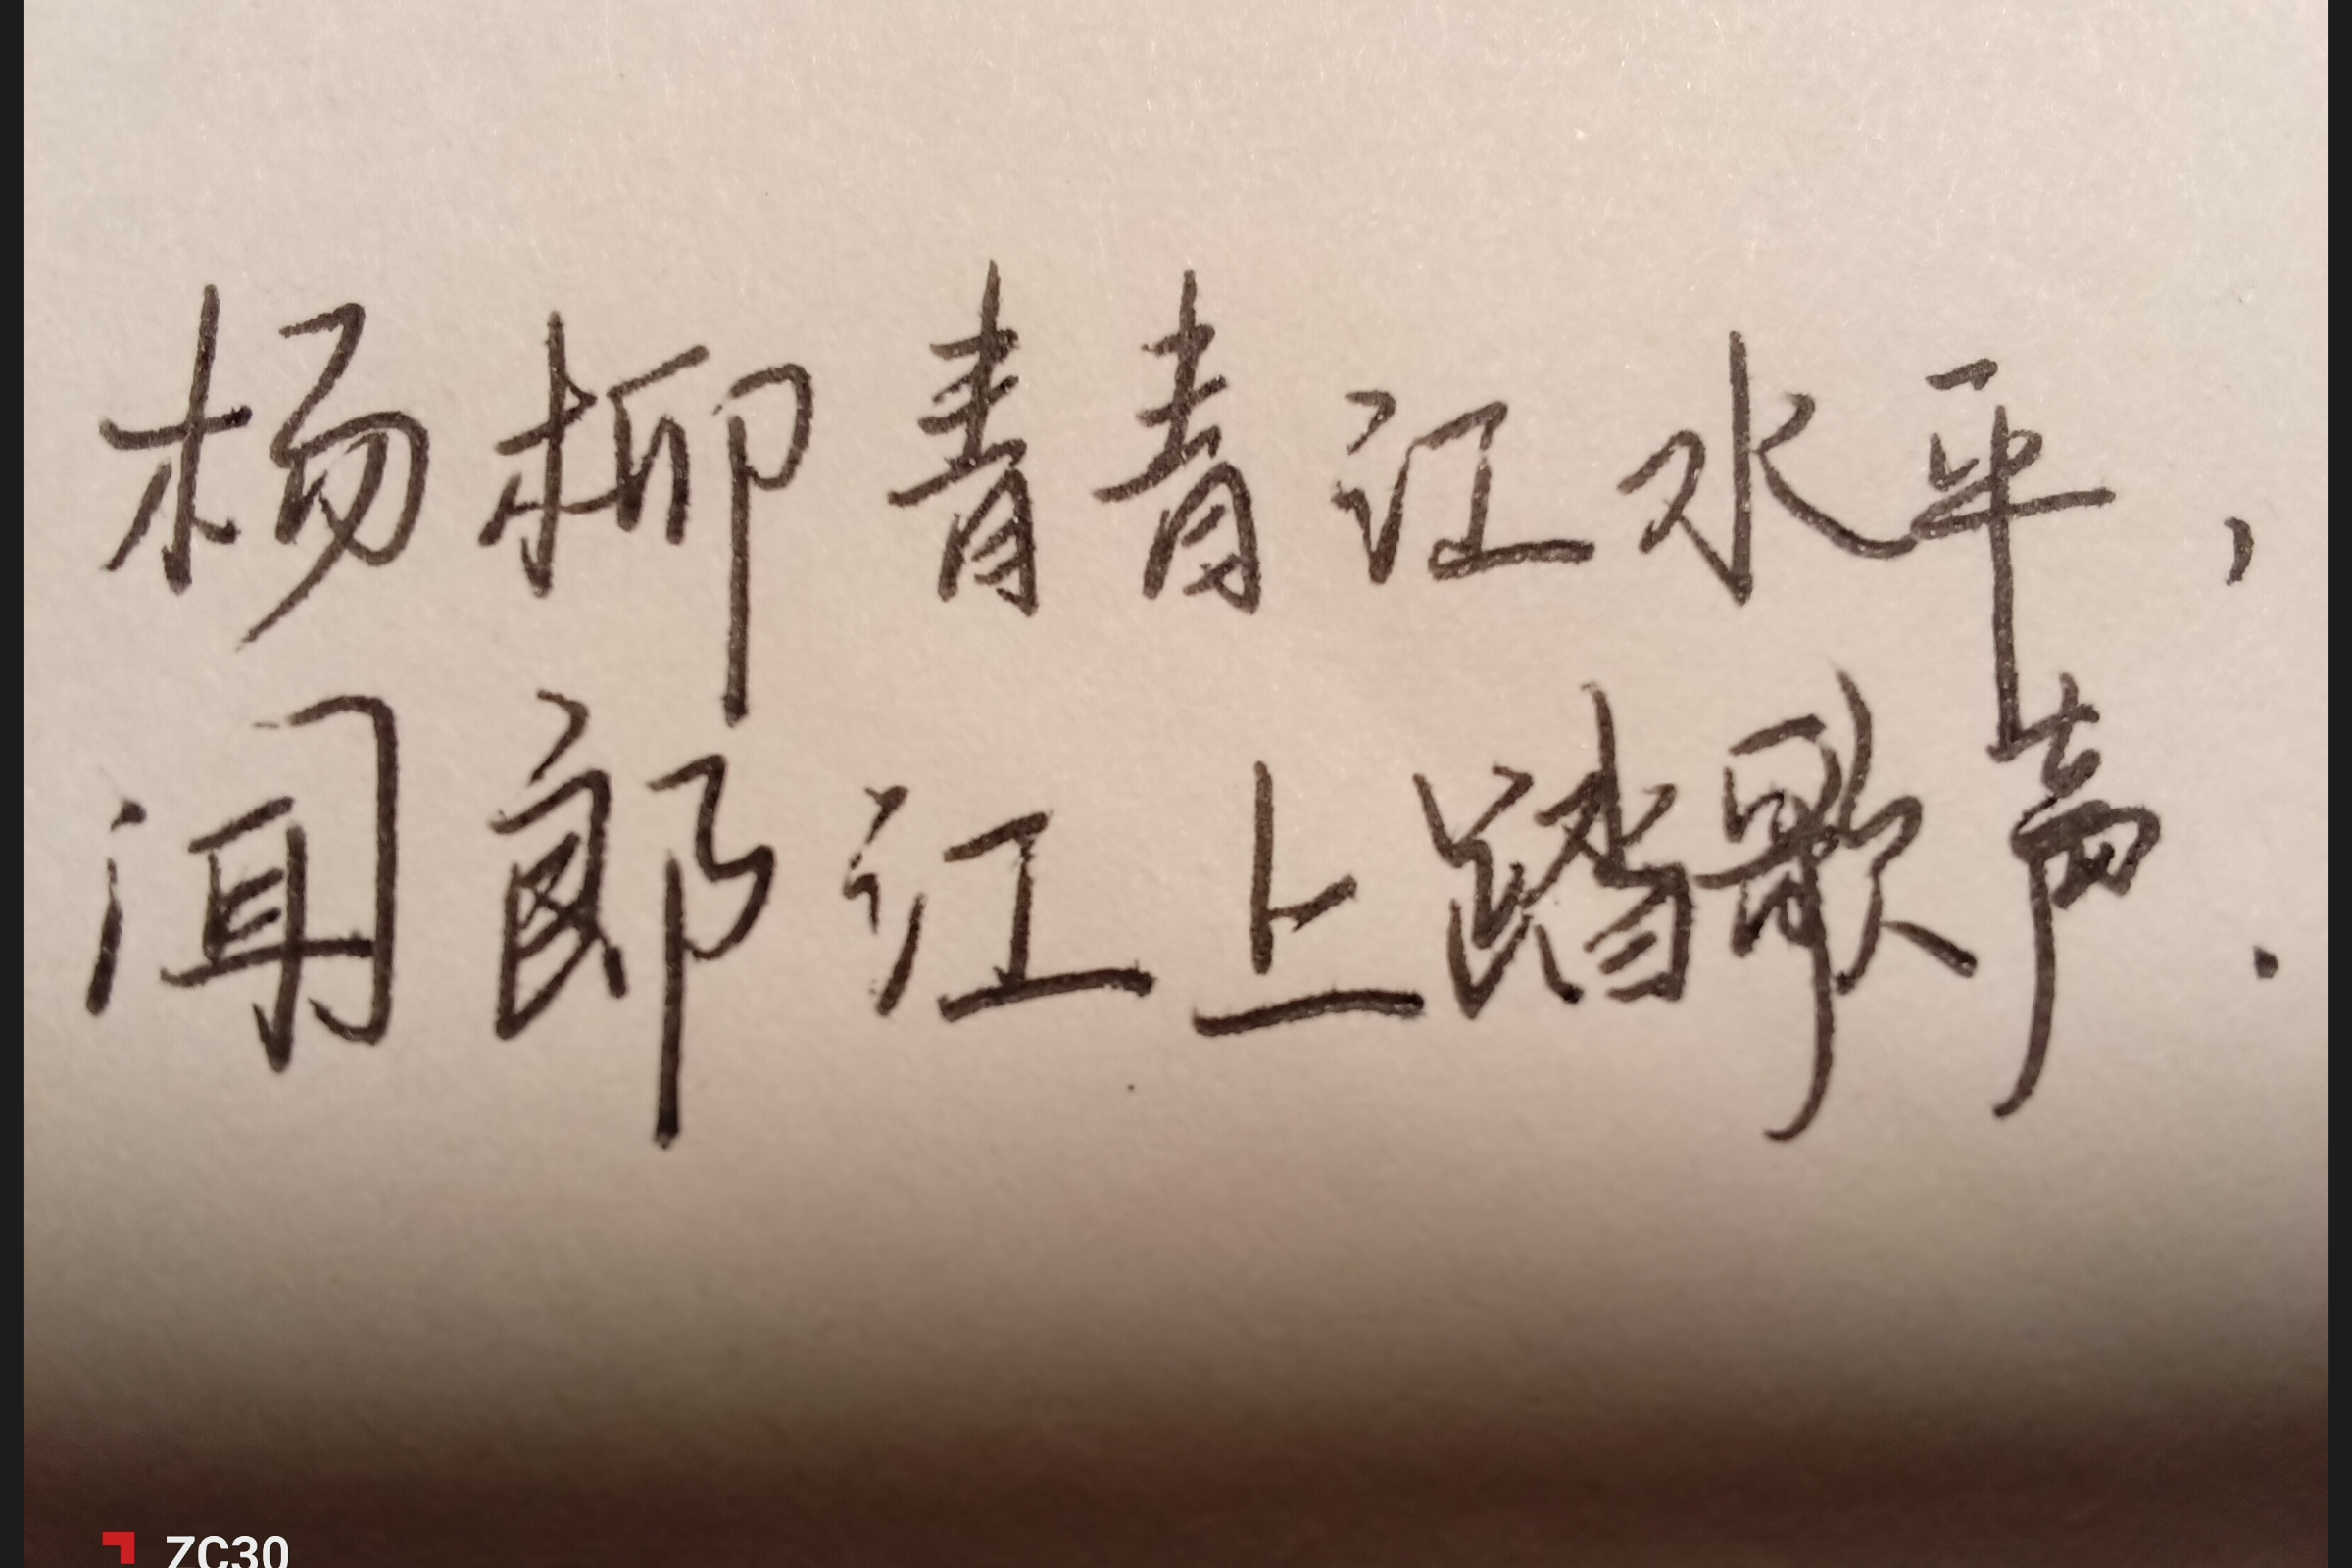 杨柳青青江水平，
闻郎江上踏歌声.
ZC30